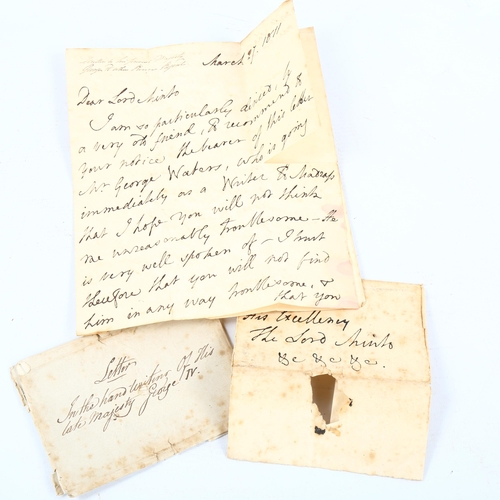 March 27. 1811
Dear Lord Minto
I am so particularly desired, by
a very old friend, to recommend to
your notice the bearer of this letter
Mr George Waters, who is going
immediately as a Writer to Madras
that I hope you will not think
me unreasonably troublesome – He
is very well spoken of – I trust
therefore that you will not find
him in any way troublesome, &
that you
His Excellency
The Lord Minto
&c &c &c.
Letter
In the hand writing of His
late Majesty George IV.